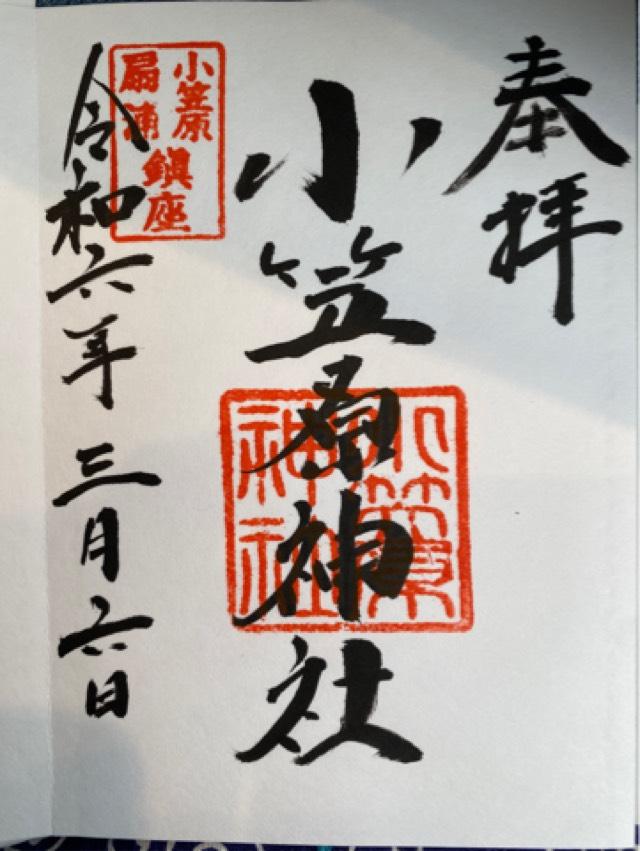 奉拝
小笠原神社
小笠原神社
小笠原
扇浦
鎮座
令和六年三月六日